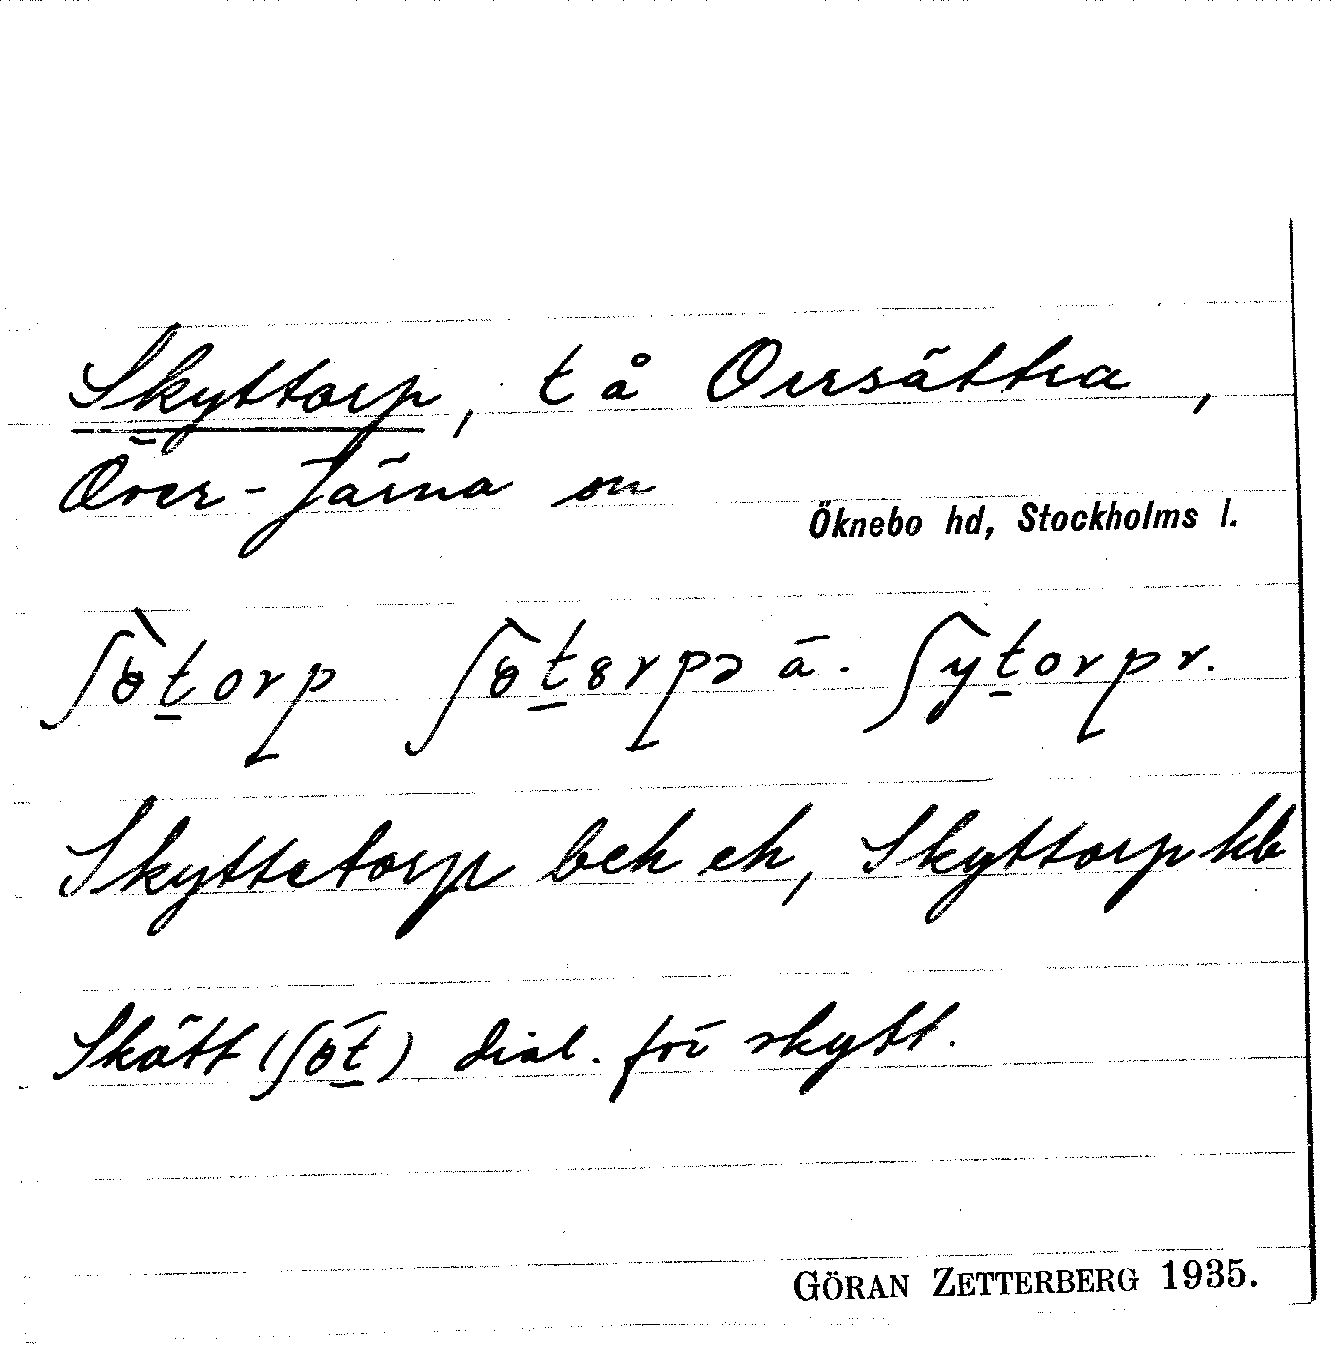 Skyttorp, t å Oxsättra,
Över-Järna sn
Öknebo hd, Stockholms l.
ʃɵ̀t̲orp ʃɵt̲ɞrpə ä. ʃyt̲orp r.
Skyttetorp bek ek, Skyttorp kb
Skött (ʃɵt̲) dial. för skytt.
GÖRAN ZETTERBERG 1935.